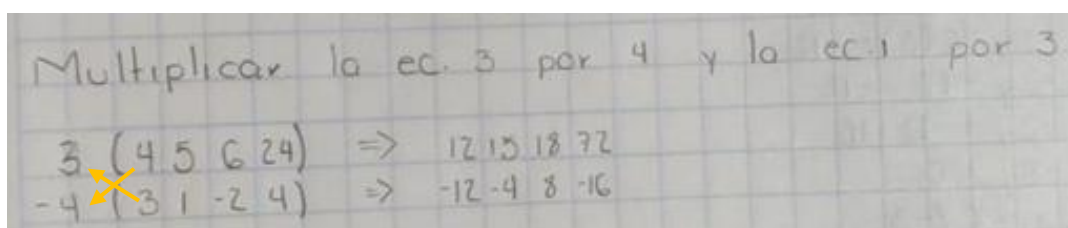 Multiplicar la ec. 3 por 4 y la ec. 1 por 3
3 (4 5 6 24) => 12 15 18 72
-4 (3 1 -2 4) => -12 -4 8 -16